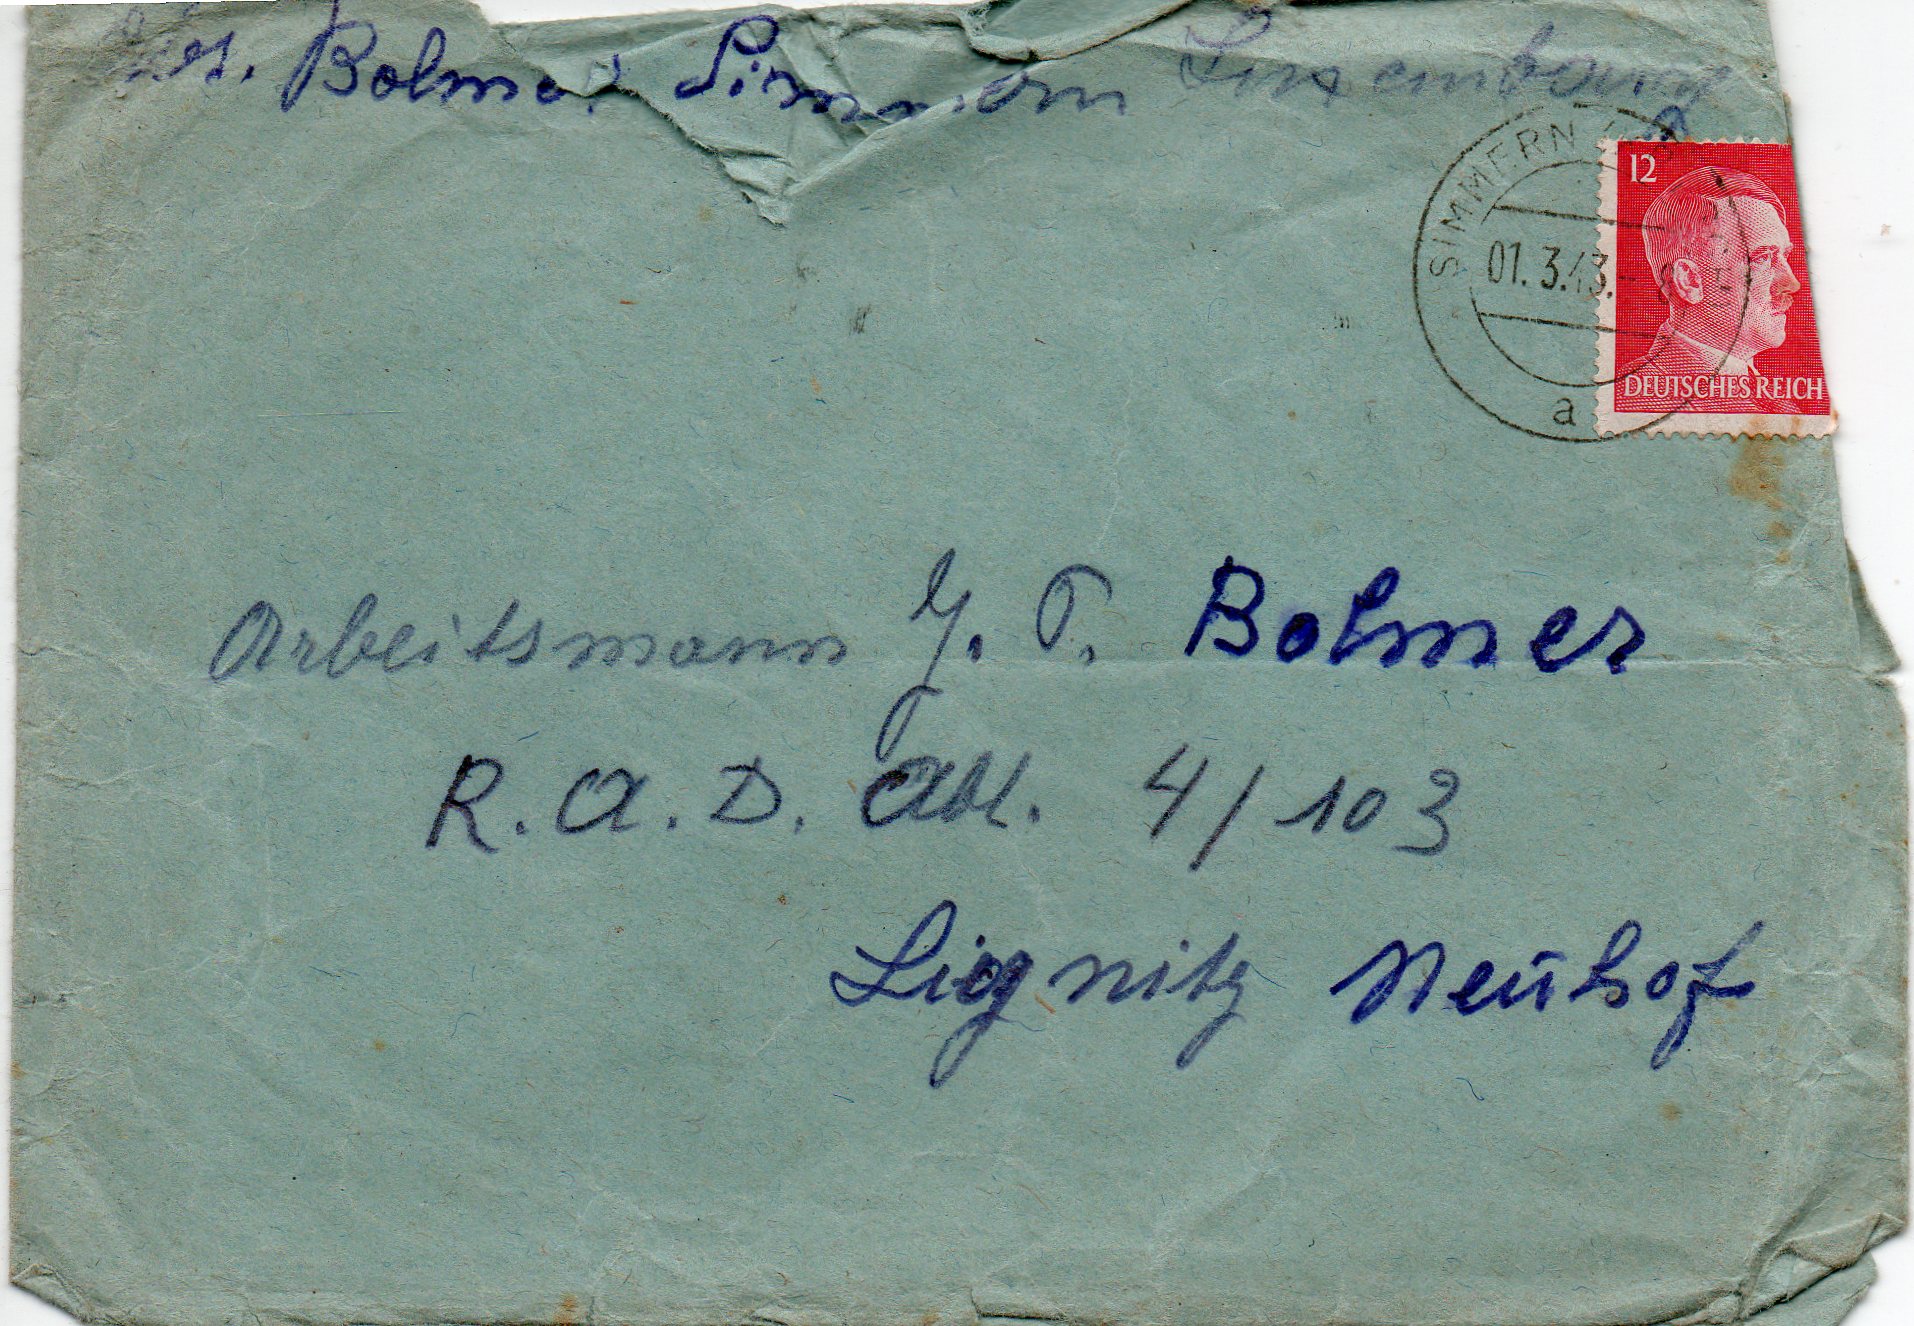 Bolmer Simmern Luxembourg
SIMMERN
12
01.3.43.
DEUTSCHES REICH
a
Arbeitsmann J. P. Bolmer
R. A. D. Abt. 4/103
Liegnitz Neuhof